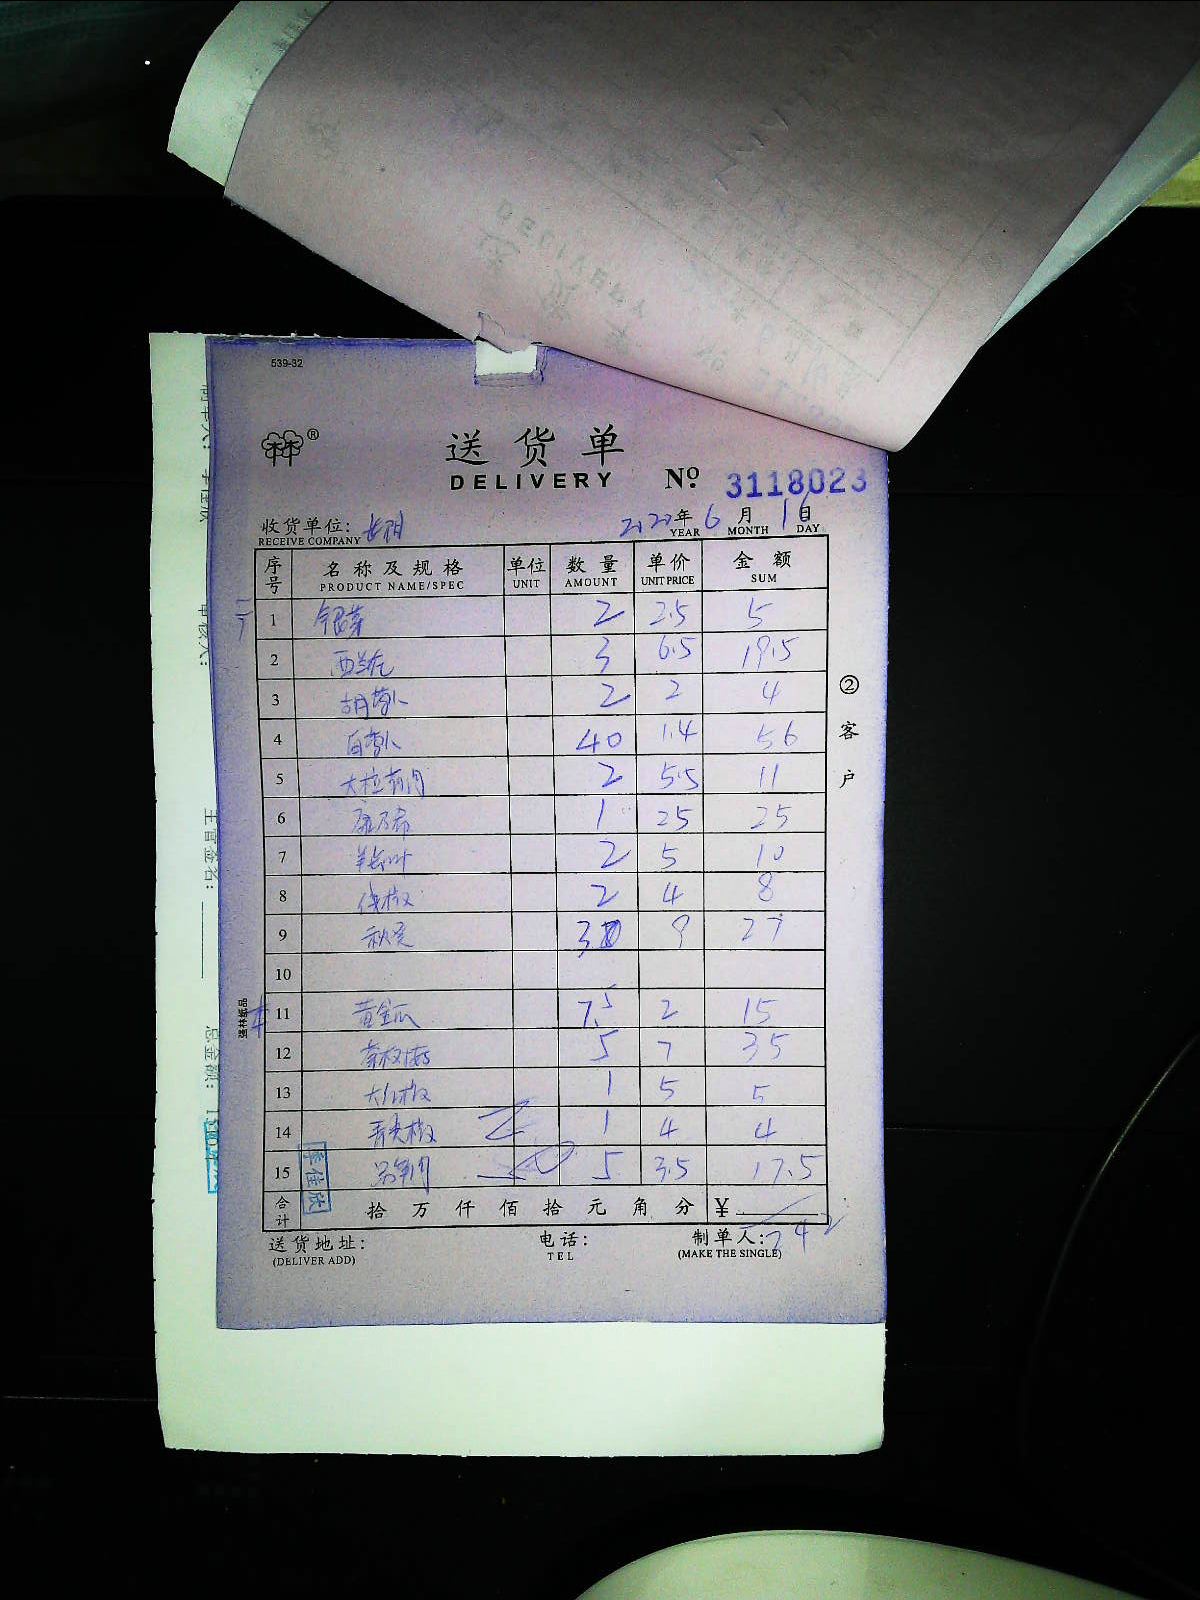 539-32
林®
送货单
DELIVERY
№ 3118023
收货单位:
RECEIVE COMPANY
2022年 6月 16日
YEAR MONTH DAY
序号 名称及规格 单位 数量 单价 金额
PRODUCT NAME/SPEC UNIT AMOUNT UNIT PRICE SUM
1 银芽 2 2.5 5
2 西兰花 3 6.5 19.5
3 胡萝卜 2 2 4
4 白萝卜 40 1.4 56
5 2 5.5 11
6 1 25 25
7 2 5 10
8 2 4 8
9 秋葵 3 9 27
10
11 黄金瓜 7.5 2 15
12 5 7 35
13 1 5 5
14 青尖椒 1 4 4
15 5 3.5 17.5
合计 拾 万 仟 佰 拾 元 角 分 ¥
242
送货地址:
(DELIVER ADD)
电话:
TEL
制单人:
(MAKE THE SINGLE)
②客户
强林纸品
李佳欣
主管签名:
总金额:
审核人: